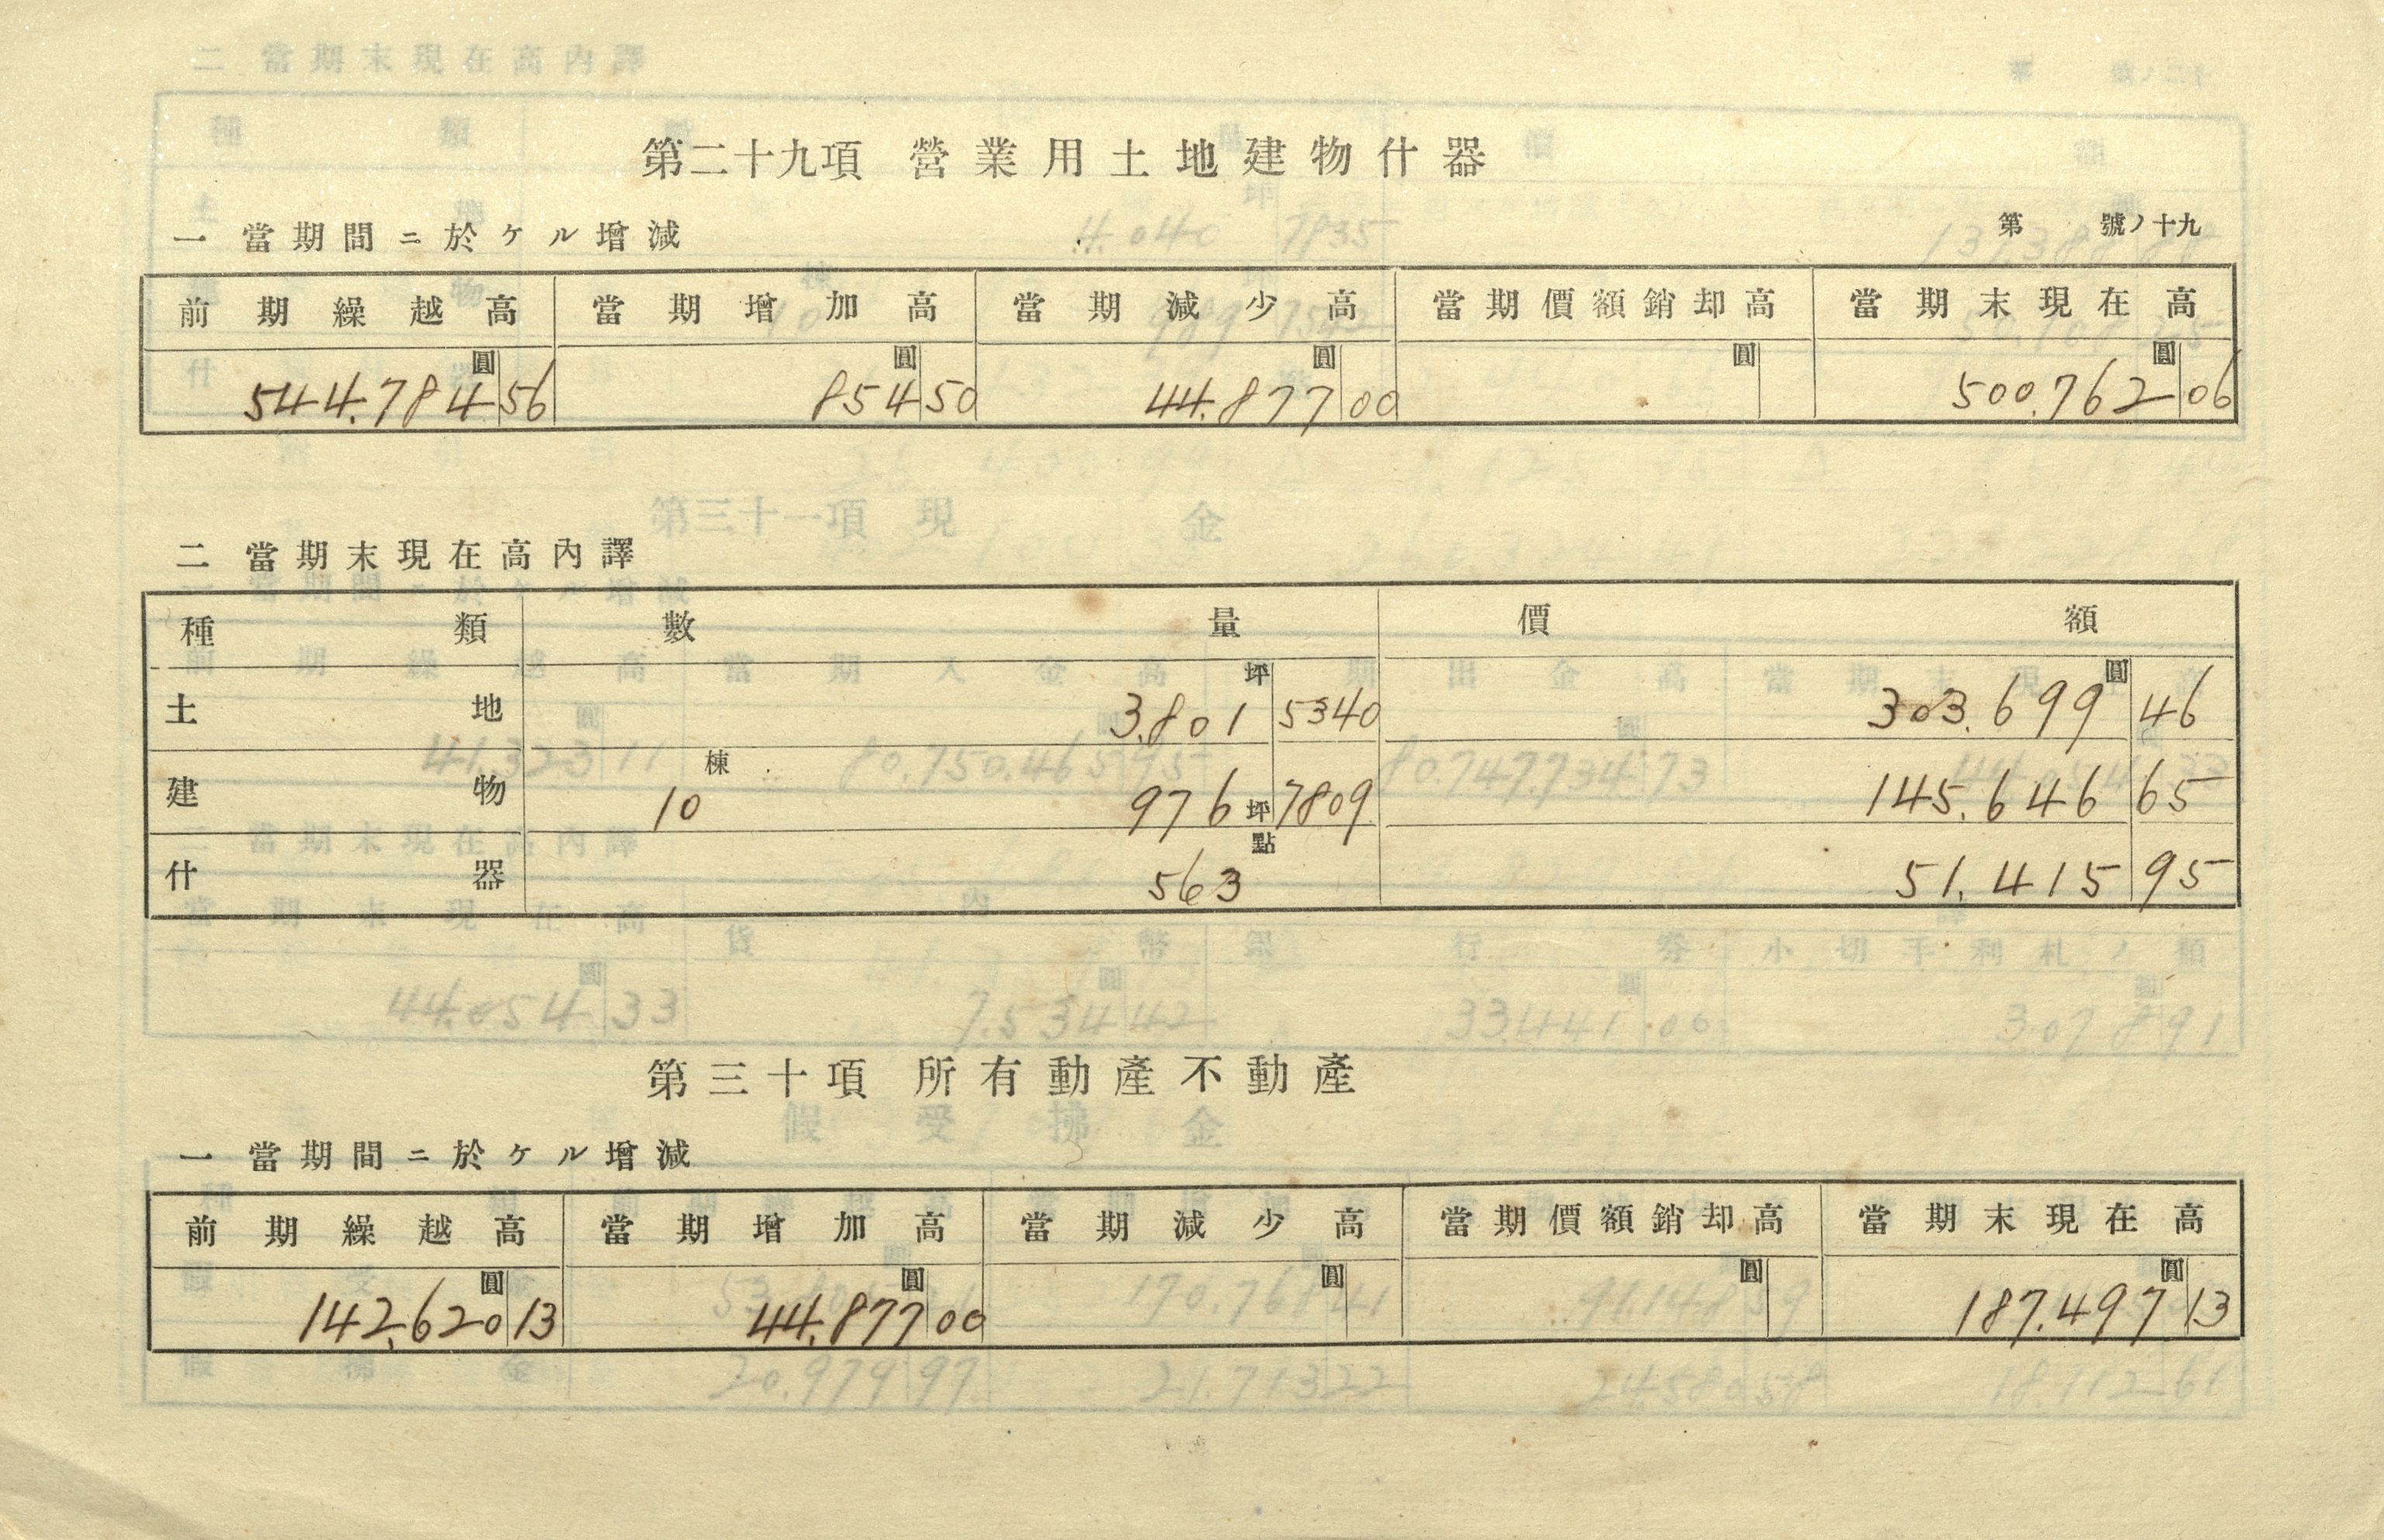 第二十九項 營業用土地建物什器
一 當期間ニ於ケル增減
第 號ノ十九
前期繰越高 當期增加高 當期減少高 當期價額銷却高 當期末現在高
圓 圓 圓 圓 圓
544.784 56 854 50 44.877 00 500.762 06
二 當期末現在高內譯
種類 數量 價額
土地 3.801坪5340 303.699圓46
建物 10棟 976坪7809 145.646 65
什器 563點 51.415 95
第三十項 所有動產不動產
一 當期間ニ於ケル增減
前期繰越高 當期增加高 當期減少高 當期價額銷却高 當期末現在高
圓 圓 圓 圓 圓
142.620 13 44.877 00 187.497 13